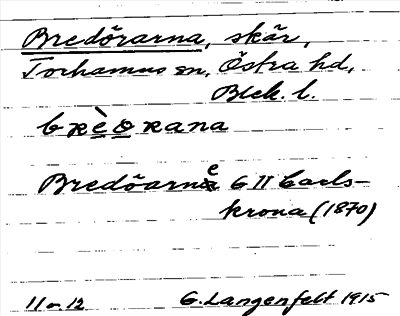 Bredörarna, skär,
Torhamns sn, Östra hd,
Blek. l.
brèorana
Bredöarne G 11 Carls-
krona (1870)
11 o. 12 G. Langenfelt 1915